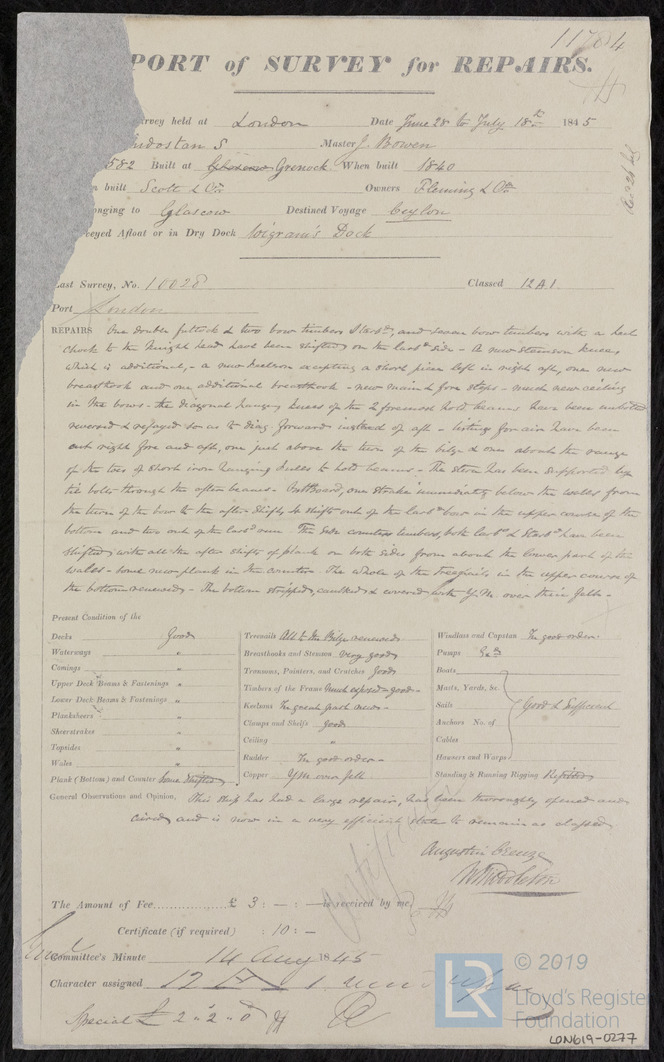 11784
PORT of SURVEY for REPAIRS.
urvey held at London Date June 28 to July 18th 1845
ndostan S Master J. Bowen
582 Built at Greenock When built 1840
n built Scott & Co Owners Fleming & Co
onging to Glascow Destined Voyage Ceylon
veyed Afloat or in Dry Dock Wigram's Dock
Last Survey, No. 10028 Classed 12A1
Port London
REPAIRS One double futtock & two bow timbers Starbd, and seven bow timbers with a
chock to the Knight head have been shifted on the larbd side - A new stemson knees
which is additional, - a new keelson excepting a short piece left in right aft, one new
breasthook and one additional breasthook - new main & fore steps - much new ceiling
in the bows - the diagonal hanging knees of the 2 foremost hold beams have been
reversed & refayed so as to diag. forward instead of aft - listings for air have been
cut right fore and aft, one just above the turn of the bilge & one about the range
of the toes of short iron hanging knees to hold beams - The stern has been supported by
bolts through the after beams - Outboard, one strake immediately below the wales from
the turn of the bow to the after shift, shift out of the larbd bow in the upper course of the
bottom and two out of the larbd run The side counter timbers both larbd & starbd have been
shifted, with all the after shifts of plank on both sides from about the lower part of the
wales - some new plank in the counter. The whole of the treenails in the upper course of
the bottom renewed - The bottom stripped, caulked & covered with Y.M. over thin felt -
Present Condition of the
Decks Good
Waterways "
Comings "
Upper Deck Beams & Fastenings "
Lower Deck Beams & Fastenings "
Planksheers "
Sheerstrakes "
Topsides "
Wales "
Plank (Bottom) and Counter Some Shifted
Treenails All to the Bilge renewed
Breasthooks and Stemson very good
Transoms, Pointers, and Crutches Good
Timbers of the Frame Much exposed - good -
Keelsons In great part new -
Clamps and Shelfs good
Ceiling "
Rudder In good order -
Copper Y.M over felt
Windlass and Capstan In good order.
Pumps
Boats
Masts, Yards, &c.
Sails Good & Sufficient
Anchors No. of
Cables
Hawsers and Warps
Standing & Running Rigging Refitted
General Observations and Opinion, This Ship has had a large repair, has been thoroughly opened and
aired and is now in a very efficient state to remain as classed
Augustin Creuze
W Middleton
The Amount of Fee £ 3 : - : - is received by me,
Certificate (if required) : 10 : -
Committee's Minute 14 Aug 1845
Character assigned 12 A 1
Special £ 2 " 2 " 0
© 2019
LR
Lloyd's Register
Foundation
LON619-0277